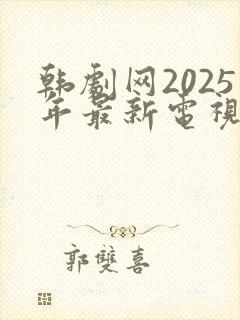 韩劇网2025
年最新電視
郭雙喜